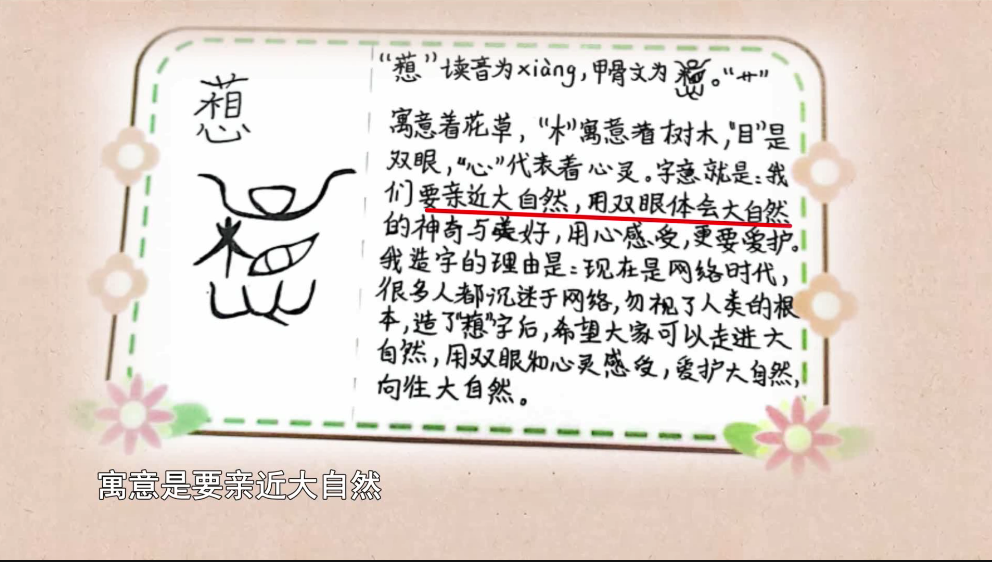 “”读音为xiàng，甲骨文为。“艹”
寓意着花草，“木”寓意着树木，“目”是
双眼，“心”代表着心灵。字意就是：我
们要亲近大自然，用双眼体会大自然
的神奇与美好，用心感受，更要爱护。
我造字的理由是：现在是网络时代，
很多人都沉迷于网络，勿视了人类的根
本，造了“”字后，希望大家可以走进大
自然，用双眼和心灵感受，爱护大自然，
向往大自然。
寓意是要亲近大自然